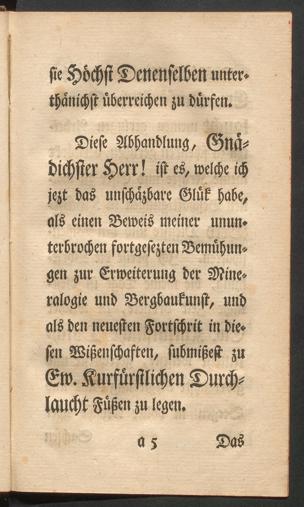 sie Höchst Denenselben unter-
thänichst überreichen zu dürfen.
Diese Abhandlung, Gnä-
dichster Herr! ist es, welche ich
jezt das unschäzbare Glük habe,
als einen Beweis meiner unun-
terbrochen fortgesezten Bemühun-
gen zur Erweiterung der Mine-
ralogie und Bergbaukunst, und
als den neuesten Fortschrit in die-
sen Wißenschaften, submißest zu
Ew. Kurfürstlichen Durch-
laucht Füßen zu legen.
a 5 Das